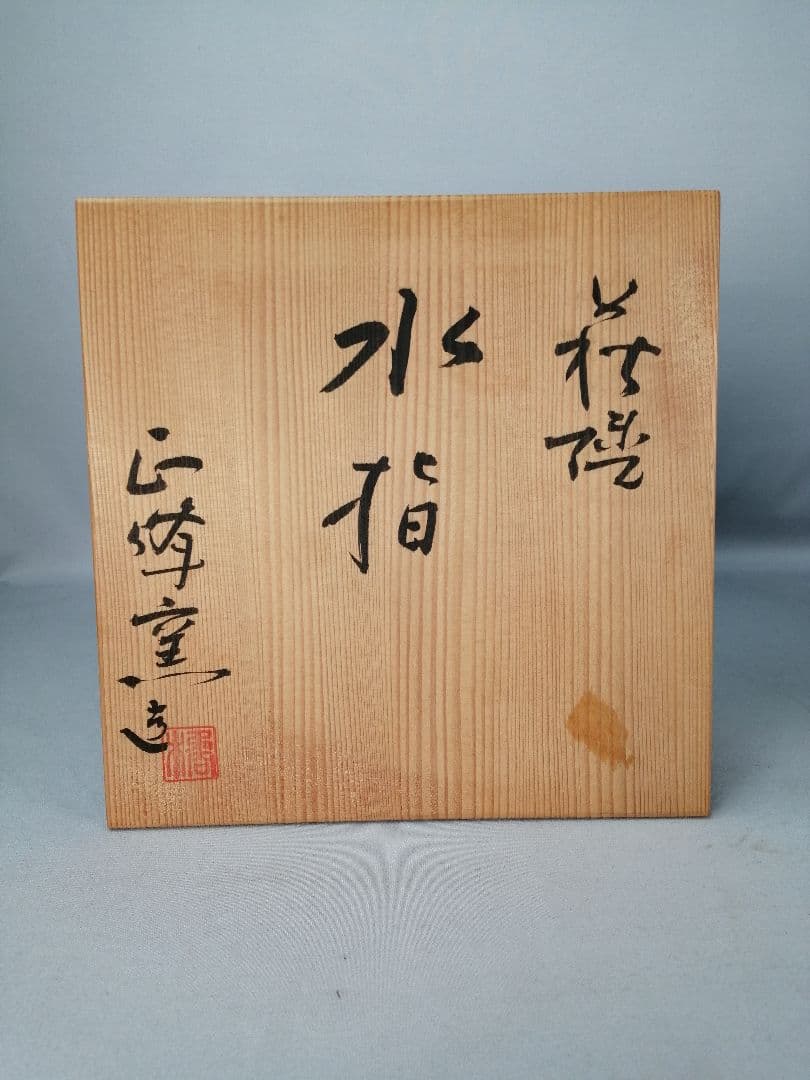 萩
水指
正峰窯造